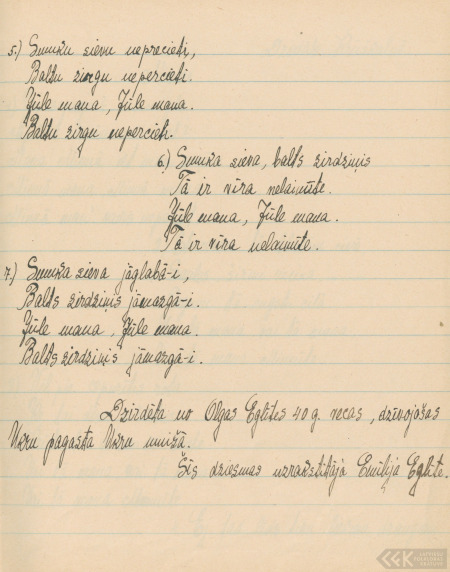 5.) Smuku sievu neprecieti,
Baltu zirgu nepercieti.
Jūle mana, Jūle mana.
Baltu zirgu nepercieti.
6.) Smuka sieva, balts zirdziņis
Tā ir vīra nelaimīte.
Jūle mana, Jūle mana.
Tā ir vīra nelaimīte.
7.) Smuka sieva jāglabā-i,
Balts zirdziņis jāmazgā-i.
Jūle mana, Jūle mana
Balts zirdziņis jāmazgā-i.
Dzirdēta no Olgas Eglītes 40 g. vecas, dzīvojošas
Ukru pagasta Ukru muižā.
Šīs dziesmas uzrakstītāja Emilija Eglīte.
LATVIEŠU
FOLKLORAS
KRĀTUVE